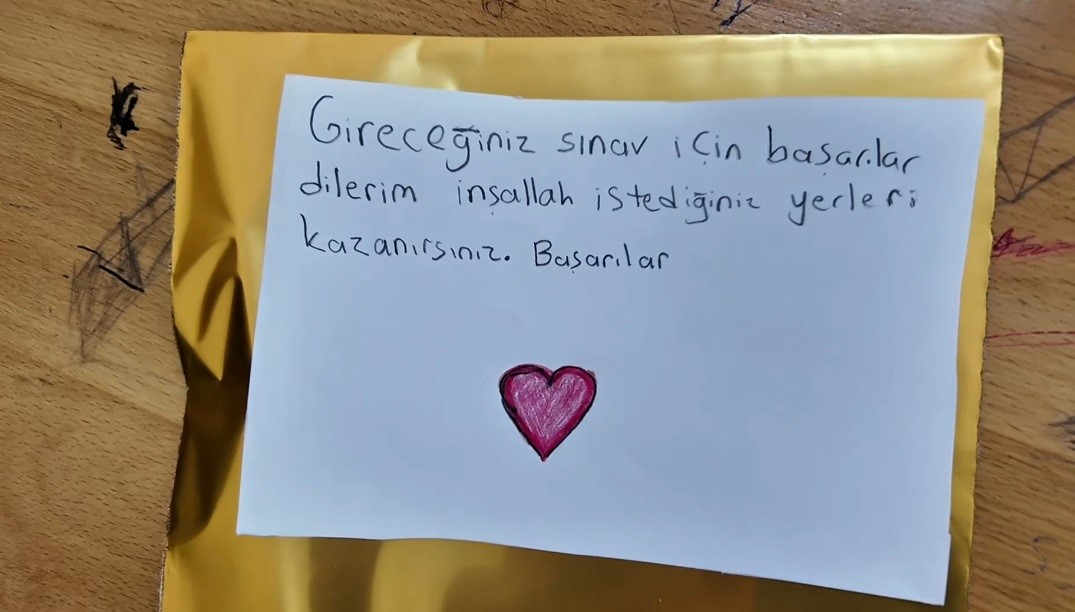 Gireceğiniz sınav için başarılar
dilerim inşallah istediğiniz yerleri
kazanırsınız. Başarılar